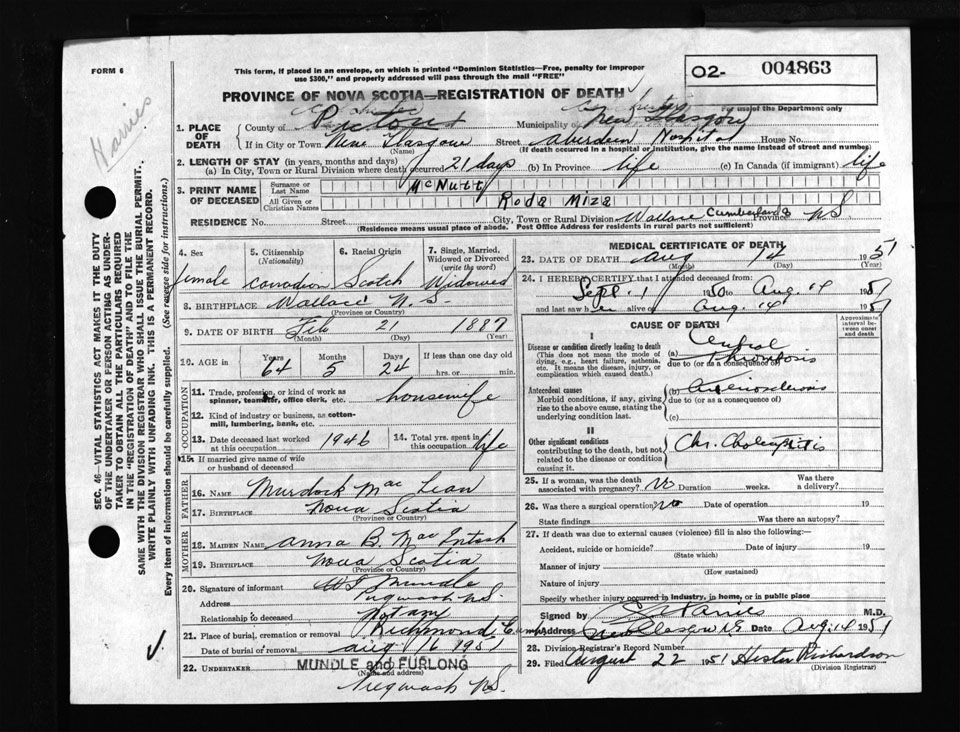 FORM 6
Harries
This form, if placed in an envelope, on which is printed "Dominion Statistics—Free, penalty for improper
use $300," and properly addressed will pass through the mail "FREE"
O2- 004863
PROVINCE OF NOVA SCOTIA—REGISTRATION OF DEATH
For use of the Department only
1. PLACE OF DEATH
County of Pictou Municipality of New Glasgow
If in City or Town New Glasgow Street Aberdeen Hospital House No.
(Name) (If death occurred in a hospital or institution, give the name instead of street and number)
2. LENGTH OF STAY (in years, months and days)
(a) In City, Town or Rural Division where death occurred 21 days (b) In Province life (c) In Canada (if immigrant) life
3. PRINT NAME OF DECEASED
Surname or Last Name McNutt
All Given or Christian Names Roda Miza
RESIDENCE No. Street City, Town or Rural Division Wallace Cumberland Province NS
(Residence means usual place of abode. Post Office Address for residents in rural parts not sufficient)
SEC. 46—VITAL STATISTICS ACT MAKES IT THE DUTY
OF THE UNDERTAKER OR PERSON ACTING AS UNDER-
TAKER TO OBTAIN ALL THE PARTICULARS REQUIRED
IN THE "REGISTRATION OF DEATH" AND TO FILE THE
SAME WITH THE DIVISION REGISTRAR WHO SHALL ISSUE THE BURIAL PERMIT.
WRITE PLAINLY WITH UNFADING INK. THIS IS A PERMANENT RECORD.
Every item of information should be carefully supplied. (See reverse side for instructions.)
4. Sex 5. Citizenship (Nationality) 6. Racial Origin 7. Single, Married, Widowed or Divorced (write the word)
female Canadian Scotch Widowed
8. BIRTHPLACE Wallace N.S.
(Province or Country)
9. DATE OF BIRTH Feb 21 1887
(Month) (Day) (Year)
10. AGE in Years Months Days If less than one day old
64 5 24 hrs. or min.
OCCUPATION
11. Trade, profession, or kind of work as spinner, teamster, office clerk, etc. housewife
12. Kind of industry or business, as cotton-mill, lumbering, bank, etc.
13. Date deceased last worked at this occupation 1946 14. Total yrs. spent in this occupation life
15. If married give name of wife or husband of deceased
FATHER
16. NAME Murdock Mac Lean
17. BIRTHPLACE Nova Scotia
(Province or Country)
MOTHER
18. MAIDEN NAME Anna B. Mac Intosh
19. BIRTHPLACE Nova Scotia
(Province or Country)
20. Signature of informant Mundle
Address Pugwash N.S.
Relationship to deceased Not any
21. Place of burial, cremation or removal Richmond, Cumb
Date of burial or removal Aug 16 1951
22. UNDERTAKER MUNDLE and FURLONG
(Name and address)
Pugwash N.S.
MEDICAL CERTIFICATE OF DEATH
23. DATE OF DEATH Aug 14 1951
(Month) (Day) (Year)
24. I HEREBY CERTIFY that I attended deceased from
Sept. 1 1950 to Aug. 14 1951
and last saw her alive on Aug. 14 1951
CAUSE OF DEATH
Approximate interval between onset and death
I
Disease or condition directly leading to death
(This does not mean the mode of dying, e.g., heart failure, asthenia, etc. It means the disease, injury, or complication which caused death.)
(a) Cerebral Thrombosis
due to (or as a consequence of)
Antecedent causes
Morbid conditions, if any, giving rise to the above cause, stating the underlying condition last.
(b) Arteriosclerosis
due to (or as a consequence of)
(c)
II
Other significant conditions
contributing to the death, but not related to the disease or condition causing it.
Chr. Cholecystitis
25. If a woman, was the death associated with pregnancy? No Duration weeks. Was there a delivery?
26. Was there a surgical operation? No Date of operation 19
State findings Was there an autopsy?
27. If death was due to external causes (violence) fill in also the following:—
Accident, suicide or homicide? Date of injury 19
(State which)
Manner of injury
(How sustained)
Nature of injury
Specify whether injury occurred in industry, in home, or in public place
Signed by M.D.
Address New Glasgow N.S. Date Aug. 14 1951
28. Division Registrar's Record Number
29. Filed August 22 1951 Hester Richardson
(Division Registrar)